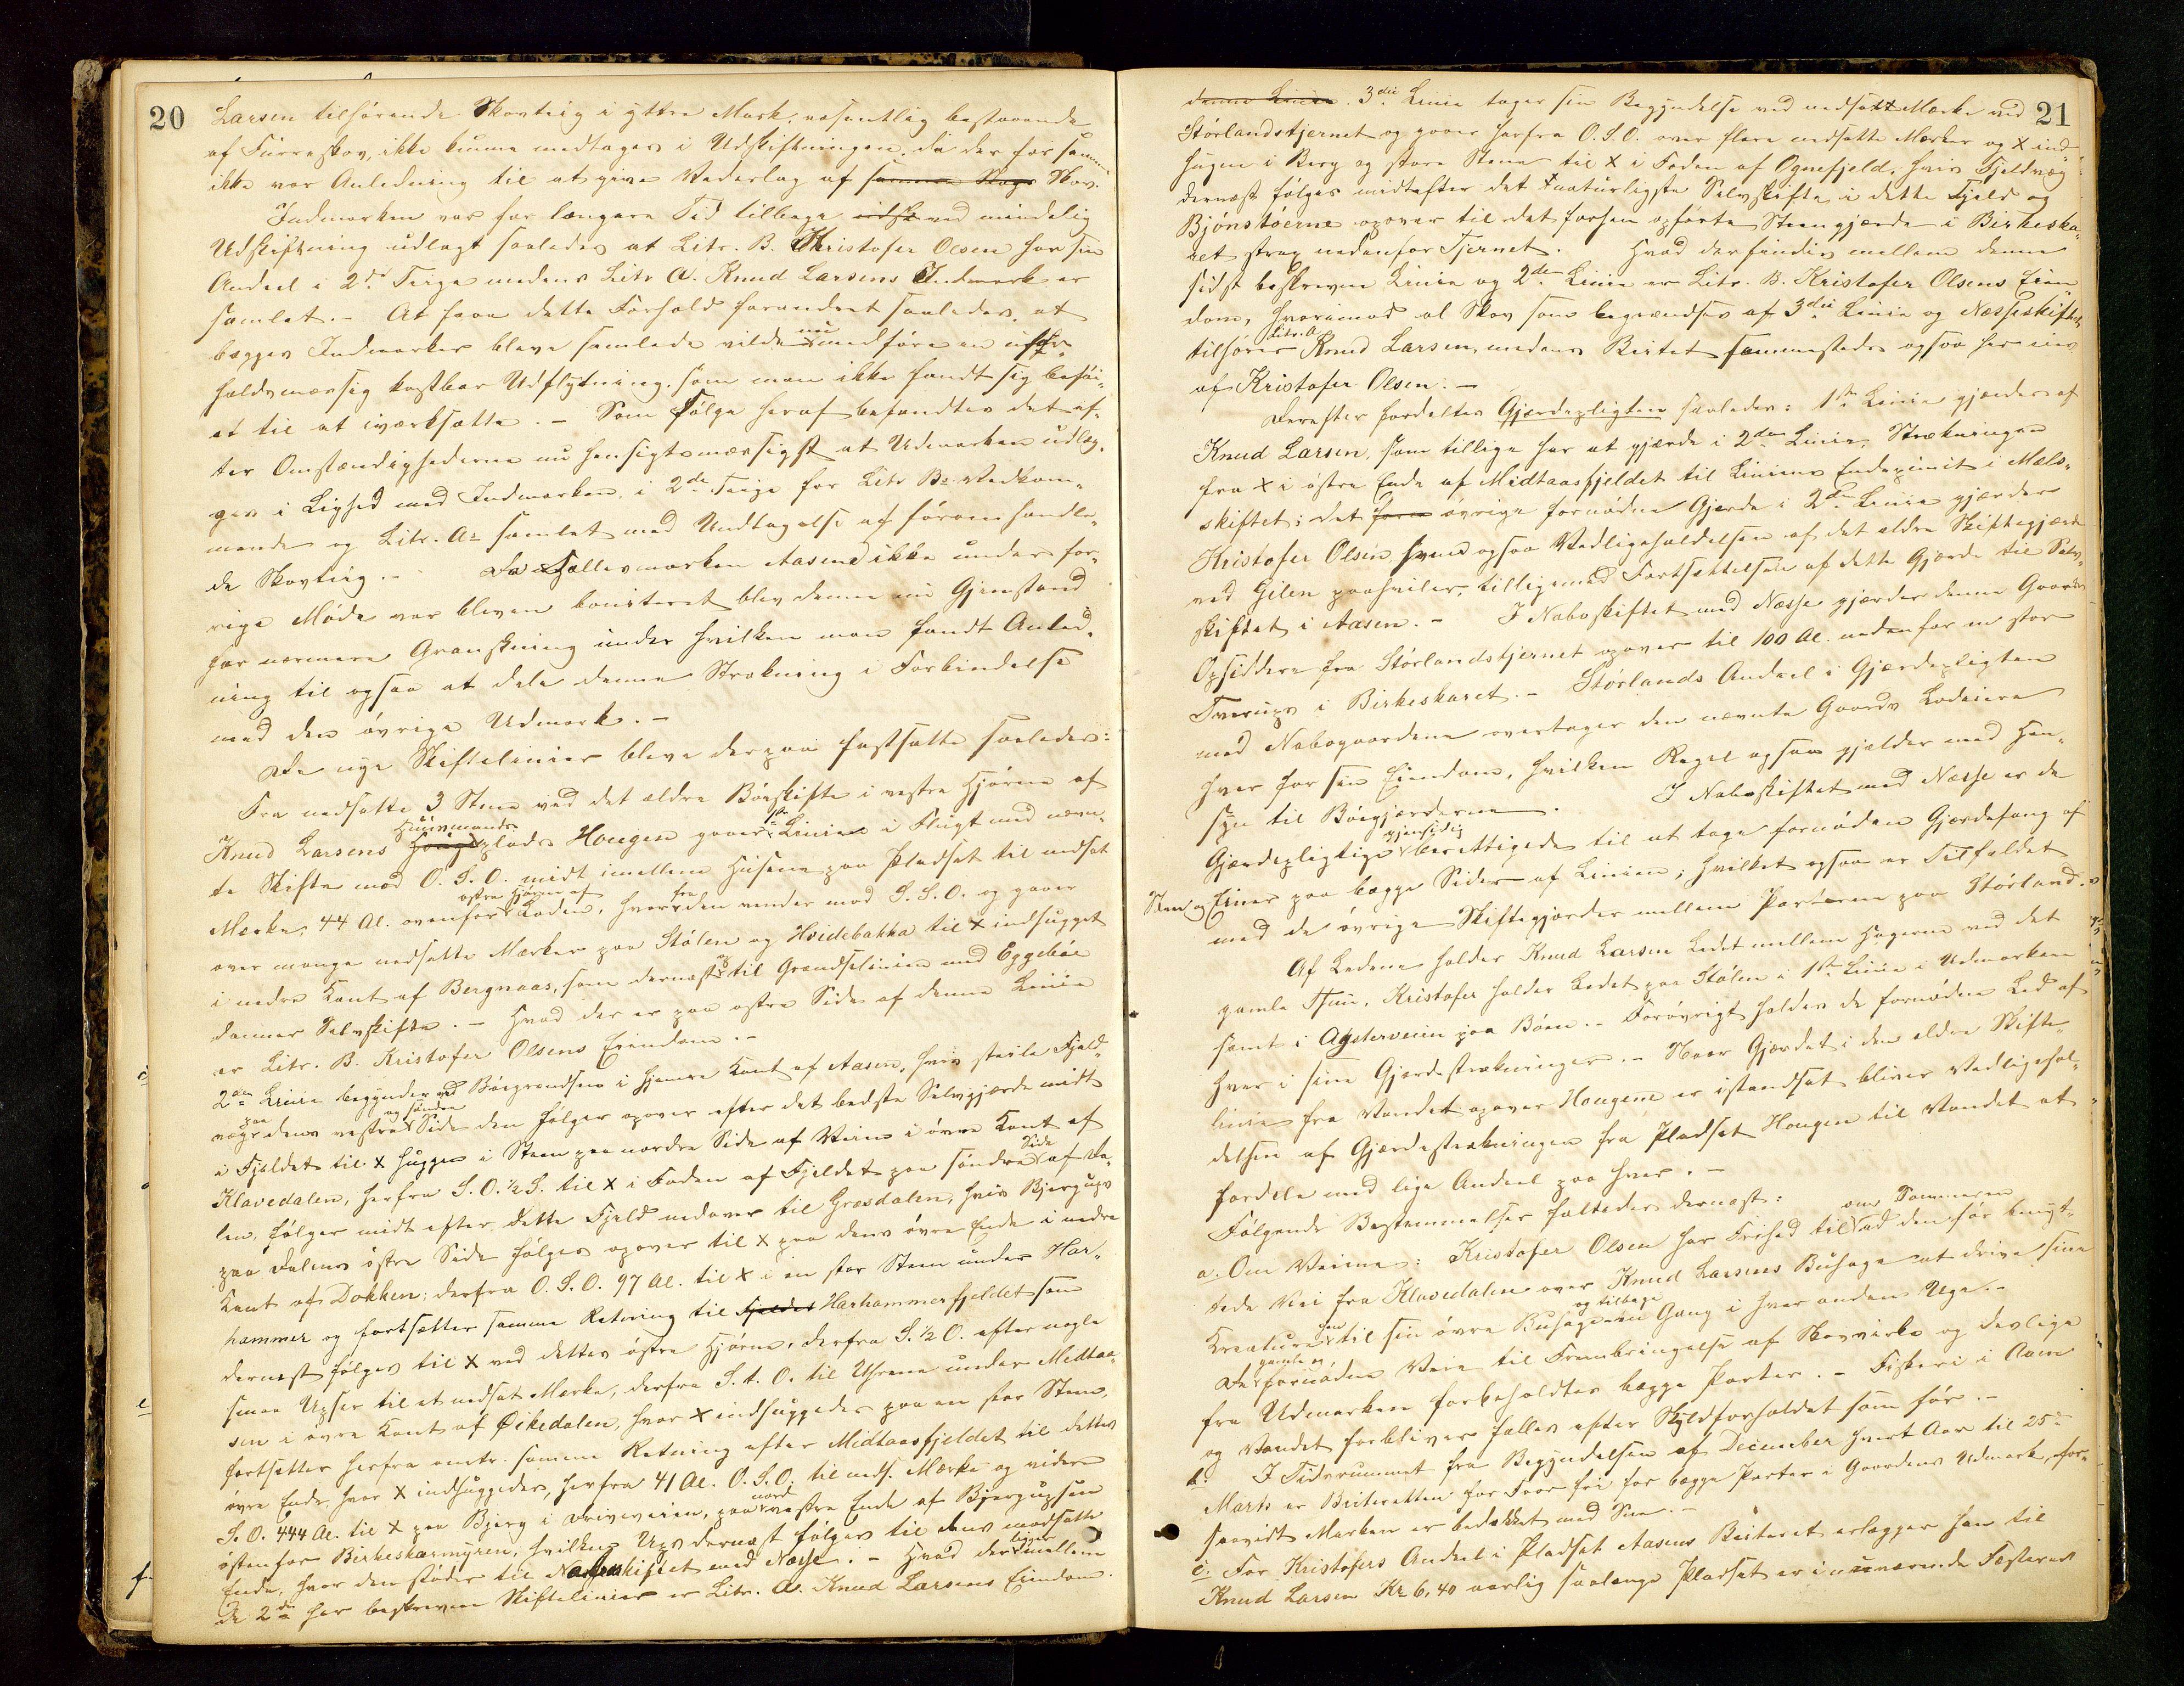 20
Larsen tilhørende Skovteig i yttre Mark, væsentlig bestaaende
af Furreskov, ikke kunne medtages i Udskiftningen, da der for samme
ikke var Anledning til at give Vederlag af samme Slags Skov.
Indmarken var for længere Tid tilbage udsk ved mindelig
Udskiftning udlagt saaledes at Litr. B. Kristofer Olsen har sin
Andeel i 2de Teige medens Litr A. Knud Larsens Indmark er
samlet. - At faae dette Forhold forandret saaledes, at
begges Indmarker bleve samlede vilde nu medføre en ufor-
holdsmæssig kostbar Udflytning, som man ikke fandt sig beføi-
et til at iværksætte. - Som Følge heraf befandtes det ef-
ter Omstændighederne nu hensigtsmæssigst at Udmarken udlæg-
ges i Lighed med Indmarken, i 2de Teige for Litr Bs Vedkom-
mende og Litr. As samlet med Undtagelse af føromhandle-
de Skovteig. - Da Fællesmarken Aasene ikke under for-
rige Møde var bleven boniteret blev denne nu Gjenstand
for nærmere Granskning under hvilken man fandt Anled-
ning til ogsaa at dele denne Strækning i Forbindelse
med den øvrige Udmark. -
De nye Skiftelinier bleve derpaa fastsatte saaledes:
Fra nedsatte 3 Stene ved det ældre Bøeskifte i vestre Hjørne af
Knud Larsens Huusmandsplads Hougen gaaer 1ste Linie i Flugt med nævn-
te Skifte mod O.S.O. midt imellem Husene paa Pladset til nedsat
Mærke, 44 Al. ovenfor østre Hjørne af Laden, hvorfra den vender mod S.S.O. og gaaer
over mange nedsatte Mærker paa Stølen og Hvidebakka til X indhugget
i nedre Kant af Bergnaas, som dernæst op til Grændselinien med Eggebøe
danner Selvskifte. - Hvad der er paa østre Side af denne Linie
er Litr. B. Kristofer Olsens Eiendom. -
2den Linie begynder ved Bøegrændsen i hjemre Kant af Aasen, hvis steile Fjeld-
væg paa dens vestre og søndre Side den følger opover efter det bedste Selvgjærde midt
i Fjeldet til X hugges i Steen paa nordre Side af Veien i øvre Kant af
Klavedalen, herfra S.O.½S. til X i Foden af Fjeldet paa søndre Side af Da-
len, følger midt efter dette Fjeld nedover til Græsdalen, hvis Bjergups
paa Dalens østre Side følges opover til X paa dens øvre Ende i nedre
Kant af Dokken; derfra O.S.O. 97 Al. til X i en stor Steen under Har-
hammer og fortsætter samme Retning til Fjeldet Harhammerfjeldet som
dernæst følges til X ved dettes østre Hjørne, derfra S.½O. efter nogle
smaa Upser til et nedsat Mærke, derfra S.t.O. til Uhrene under Midtaa-
sen i øvre Kant af Øikedalen, hvor X indhuggedes paa en stor Steen,
fortsætter herfra omtr. samme Retning efter Midtaasfjeldet til dettes
øvre Ende, hvor X indhuggedes, herfra 41 Al. O.S.O. til neds. Mærke og videre
S.O. 444 Al. til X paa Bjerg i Driveveien, paa nordvestre Ende af Bjergupsen
østenfor Birkeskarmyren, hvilken Ups dernæst følges til dens modsatte
Ende, hvor den støder til Naboskiftet med Næsse. - Hvad der ligger mellem
de 2de her beskrevne Skiftelinier er Litr. A. Knud Larsens Eiendom.
21
denne Linie. 3die Linie tager sin Begyndelse ved nedsatt Mærke ved
Størlandstjernet og gaaer herfra O.S.O. over flere nedsatte Mærker og X ind-
hugne i Berg og store Stene til X i Foden af Ognefjeld, hvis Fjeldvæg
dernæst følges midtefter det naturligste Selvskifte i dette Fjeld og
Bjønstøerne opover til det forhen opførte Steengjærde i Birkeska-
ret strax nedenfor Tjernet. Hvad der findes mellem denne
sidst beskrevne Linie og 2den Linie er Litr. B. Kristofer Olsens Eien-
dom, hvorimod al Skov som begrændses af 3die Linie og Næsseskiftet
tilhører Litr. A Knud Larsen, medens Beitet sammesteds ogsaa her eies
af Kristofer Olsen. -
Derefter fordeltes Gjærdepligten saaledes: 1ste Linie gjærdes af
Knud Larsen, som tillige har at gjærde i 2den Linie, Strækningen
fra X i østre Ende af Midtaasfjeldet til Liniens Endepunkt i Næsse-
skiftet; det øvrige fornødne Gjærde i 2den Linie gjærder
Kristofer Olsen hvem ogsaa Vedligeholdelsen af det ældre Skiftegjærde
ved Gilen paahviler, tilligemed Fortsættelsen af dette Gjærde til Selv-
skiftet i Aasen. - I Naboskiftet med Næsse gjærder denne Gaards
Opsiddere fra Størlandstjernet opover til 100 Al. nedenfor en stor
Tverups i Birkeskaret. - Størlands Andeel i Gjærdepligten
med Nabogaardene overtager den nævnte Gaards Lodeiere
hver for sin Eiendom, hvilken Regel ogsaa gjælder med Hen-
syn til Bøegjærderne. I Naboskiftet med Næsse er de
Gjærdepligtige gjensidig berettigede til at tage fornøden Gjærdefang af
Steen og Einer paa begge Sider af Linien; hvilket ogsaa er Tilfældet
med de øvrige Skiftegjærder mellem Parterne paa Størland.
Af Ledene holder Knud Larsen Ledet mellem Hagerne ved det
gamle Thun, Kristofer holder Ledet paa Stølen i 1ste Linie i Udmarken
samt i Agsterveien paa Bøen. - Forøvrigt holdes de fornødne Led af
hver i sine Gjærdestrækninger. - Naar Gjærdet i den ældre Skifte-
linie fra Vandet opover Hougene er istandsat bliver Vedligehol-
delsen af Gjærdestrækningen fra Pladset Hougen til Vandet at
fordele med lige Andeel paa hver. -
Følgende Bestemmelser fattedes dernæst:
a. Om Veiene: Kristofer Olsen har Frihed til om Sommeren ad den før benyt-
tede Vei fra Klavedalen over Knud Larsens Buhage at drive sine
Kreature hen til sin øvre Buhage og tilbage en Gang i hver anden Uge. -
De gamle og fornødne Veie til Frembringelse af Skovvirke og deslige
fra Udmarken forbeholdtes begge Parter. - Fiskeri i Aaen
og Vandet forbliver fælles efter Skyldforholdet som før. -
b. I Tidsrummet fra Begyndelsen af December hvert Aar til 25de
Marts er Beiteretten for Faar fri for begge Parter i Gaardens Udmark, for-
saavidt Marken er bedækket med Sne. -
c. For Kristofers Andeel i Pladset Aasens Beiteret erlægger han til
Knud Larsen Kr. 6,40 aarlig saalænge Pladset er i nuværende Fæsteres